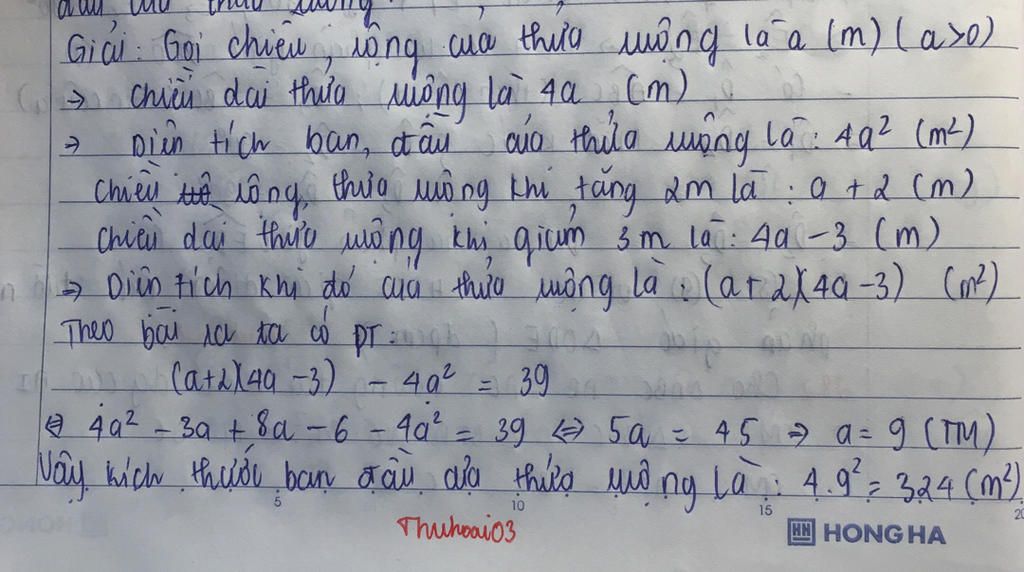 đầu của thửa ruộng.
Giải: Gọi chiều rộng của thửa ruộng là a (m) (a>0)
⇒ chiều dài thửa ruộng là 4a (m)
⇒ Diện tích ban đầu của thửa ruộng là: 4a² (m²)
chiều rộng thửa ruộng khi tăng 2m là: a + 2 (m)
chiều dài thửa ruộng khi giảm 3m là: 4a - 3 (m)
⇒ Diện tích khi đó của thửa ruộng là: (a+2)(4a-3) (m²)
Theo bài ra ta có PT:
(a+2)(4a-3) - 4a² = 39
⇔ 4a² - 3a + 8a - 6 - 4a² = 39 ⇔ 5a = 45 ⇒ a = 9 (TM)
Vậy kích thước ban đầu của thửa ruộng là: 4.9² = 324 (m²)
5 10 15 20
Thuhoai03
HH HONG HA